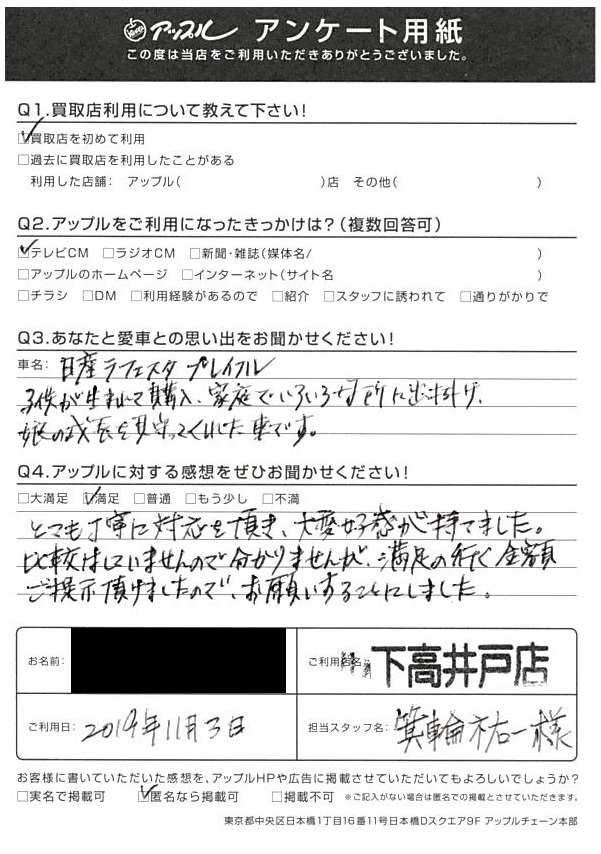 アップル アンケート用紙
この度は当店をご利用いただきありがとうございました。
Q1.買取店利用について教えて下さい!
□買取店を初めて利用
□過去に買取店を利用したことがある
利用した店舗: アップル( )店 その他( )
Q2.アップルをご利用になったきっかけは?(複数回答可)
□テレビCM □ラジオCM □新聞・雑誌(媒体名/ )
□アップルのホームページ □インターネット(サイト名 )
□チラシ □DM □利用経験があるので □紹介 □スタッフに誘われて □通りがかりで
Q3.あなたと愛車との思い出をお聞かせください!
車名: 日産ラフェスタ プレイフル
子供が生まれて購入、家庭でいろいろな所に出掛け、
娘の成長を見守ってくれた車です。
Q4.アップルに対する感想をぜひお聞かせください!
□大満足 □満足 □普通 □もう少し □不満
とても丁寧に対応を頂き、大変好感が持てました。
比較はしていませんので分かりませんが、満足の行く金額
ご提示頂けましたので、お願いすることにしました。
お名前: ご利用店名: 下高井戸店
ご利用日: 2019年11月3日 担当スタッフ名: 箕輪祐一様
お客様に書いていただいた感想を、アップルHPや広告に掲載させていただいてもよろしいでしょうか?
□実名で掲載可 □匿名なら掲載可 □掲載不可 ※ご記入がない場合は匿名での掲載とさせていただきます。
東京都中央区日本橋1丁目16番11号日本橋Dスクエア9F アップルチェーン本部